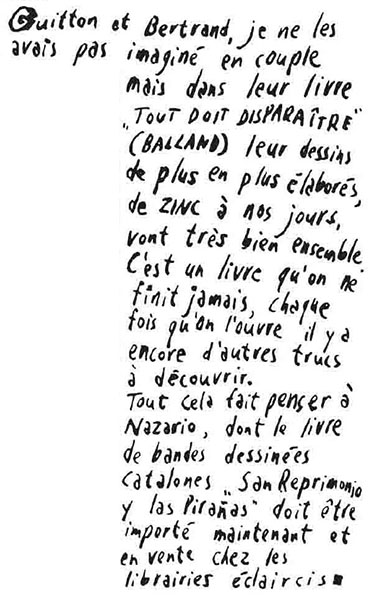 Guitton et Bertrand, je ne les
avais pas imaginé en couple
mais dans leur livre
"TOUT DOIT DISPARAÎTRE"
(BALLAND) leur dessins
de plus en plus élaborés,
de ZINC à nos jours,
vont très bien ensemble
C'est un livre qu'on ne
finit jamais, chaque
fois qu'on l'ouvre il y a
encore d'autres trucs
à découvrir.
Tout cela fait penser à
Nazario, dont le livre
de bandes dessinées
Catalones "San Reprimonio
y las Pirañas" doit être
importé maintenant et
en vente chez les
librairies éclaircis